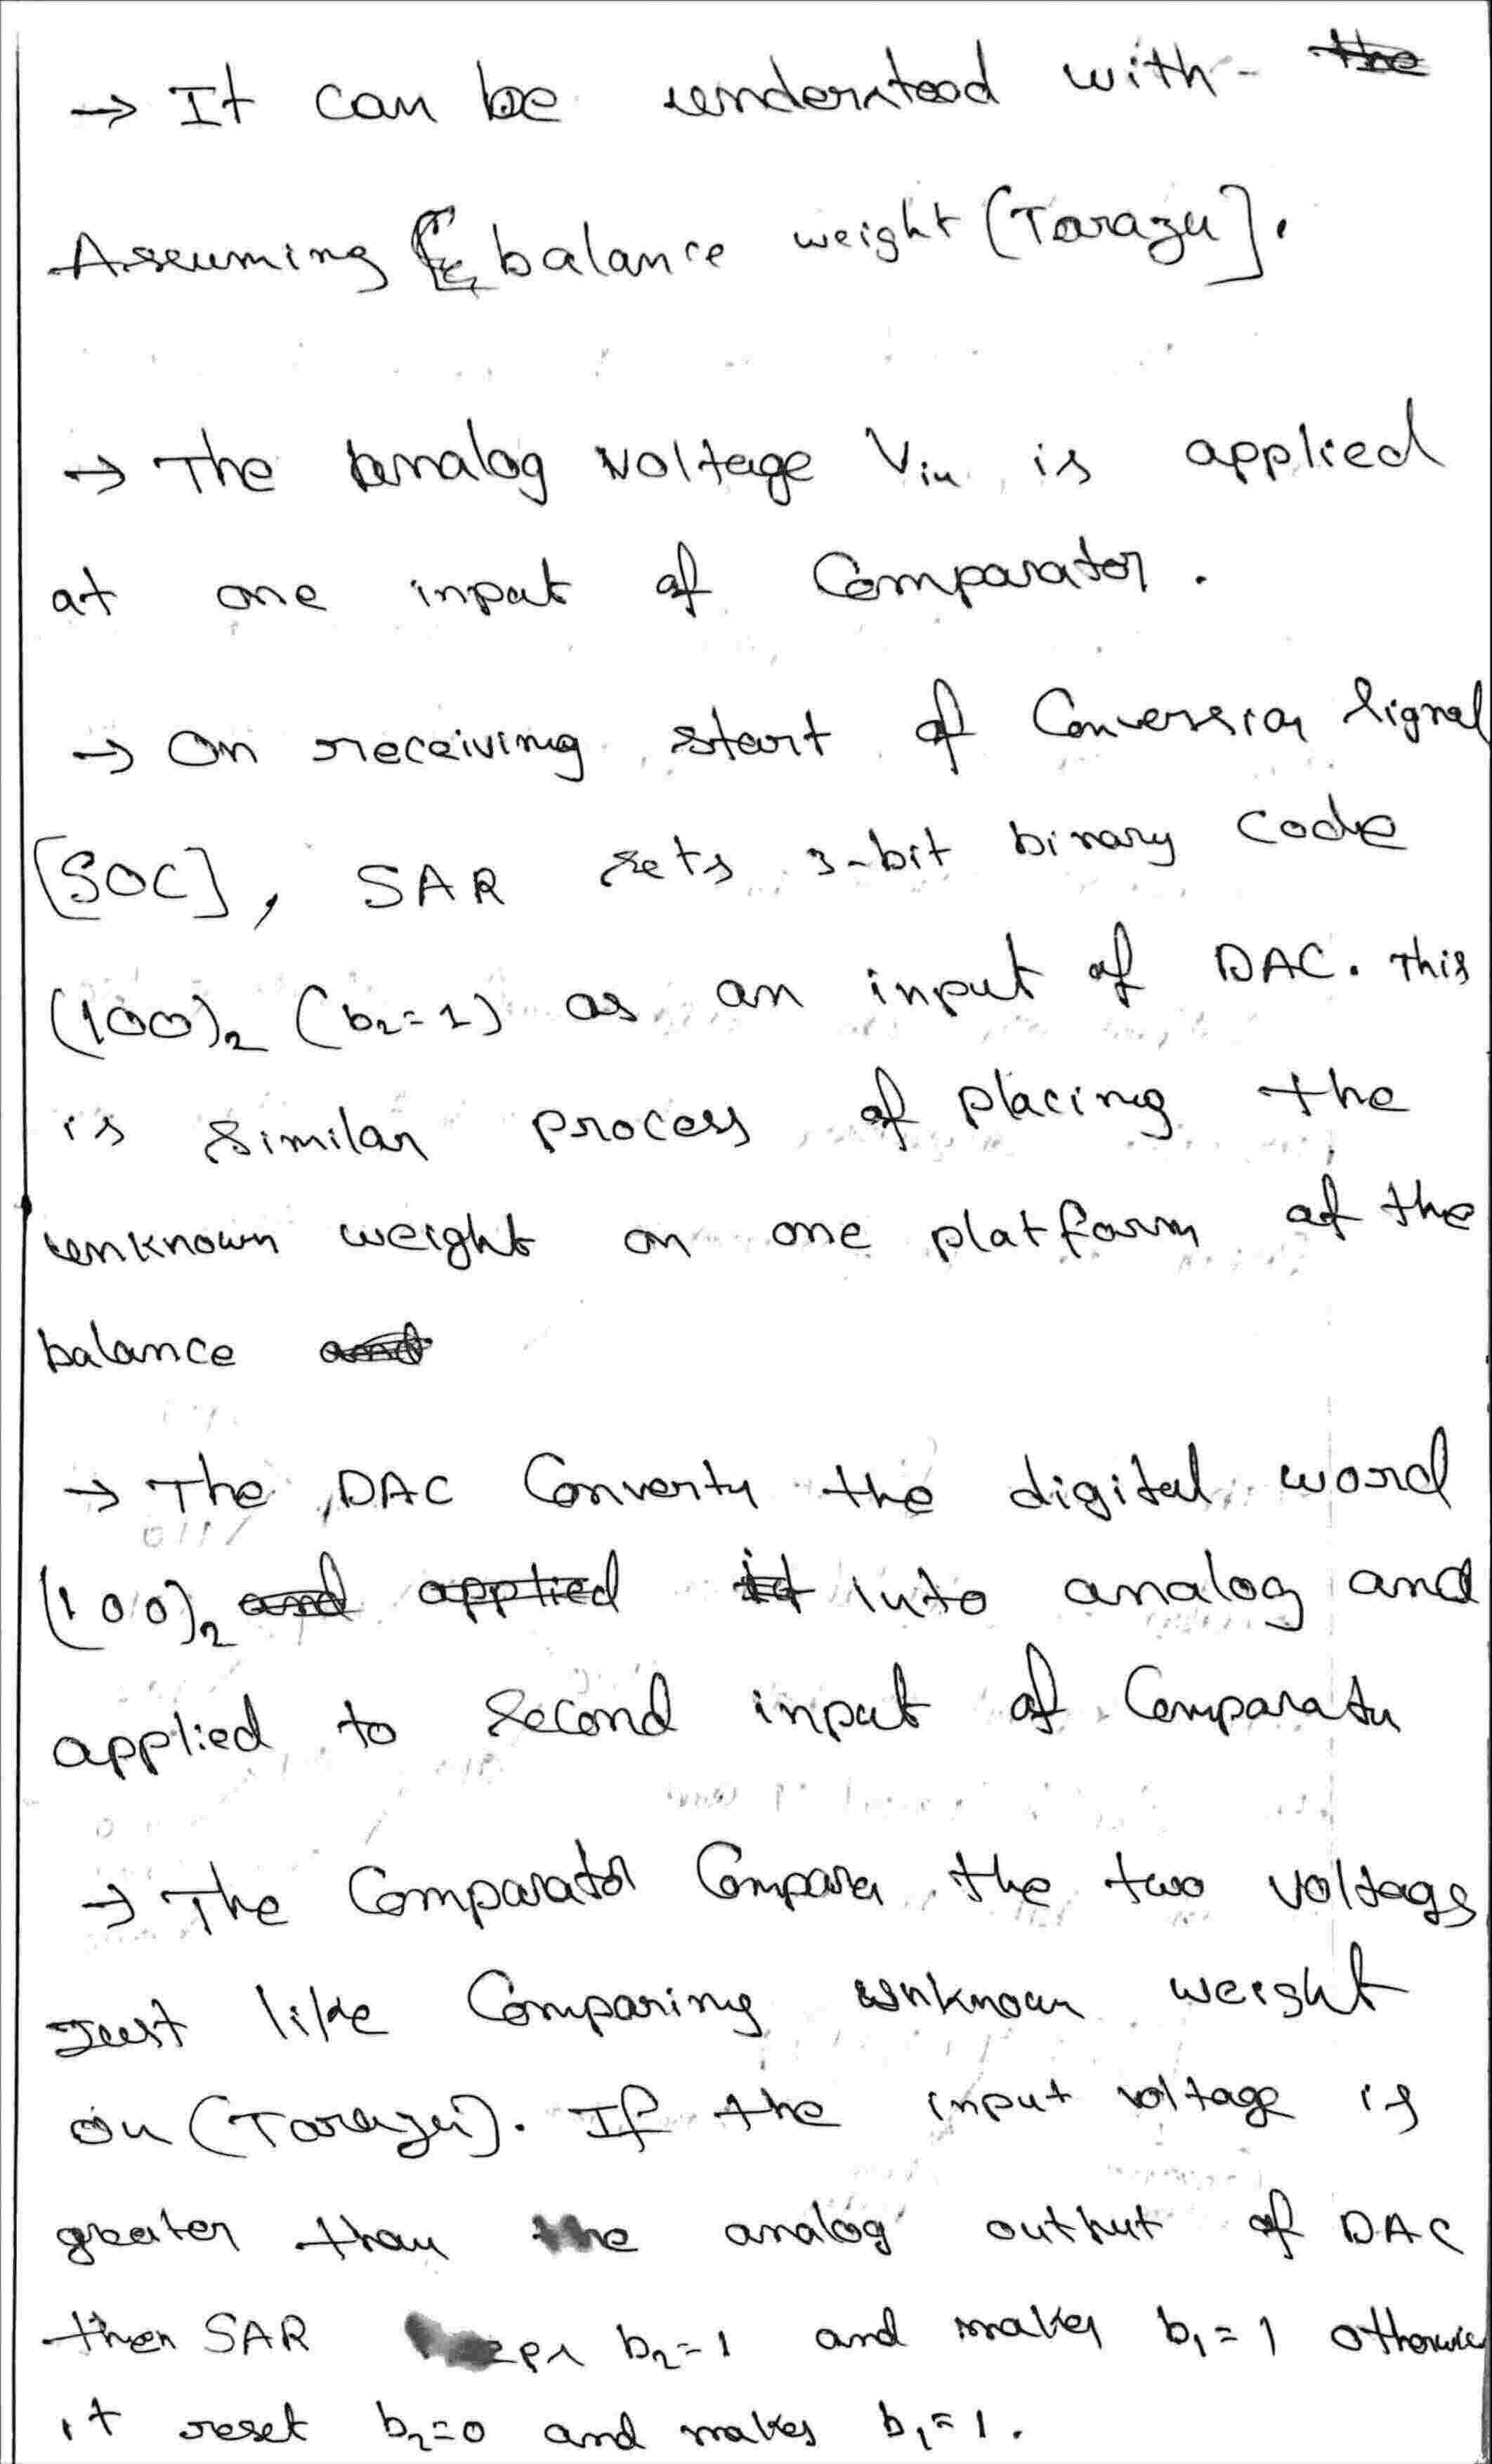 → It can be understood with - the
Assuming balance weight [Tarazu].
→ The analog voltage Vin is applied
at one input of Comparator.
→ On receiving start of Conversion signal
[SOC], SAR sets 3-bit binary code
(100)₂ (b₂=1) as an input of DAC. This
is similar process of placing the
unknown weight on one platform of the
balance and
→ The DAC Converts the digital word
(100)₂ and applied it into analog and
applied to second input of Comparator
→ The Comparator Compares the two voltags
Just like Comparing unknown weight
on (Tarazu). If the input voltage is
greater than the analog output of DAC
then SAR b₂=1 and makes b₁=1 otherwise
it reset b₂=0 and makes b₁=1.